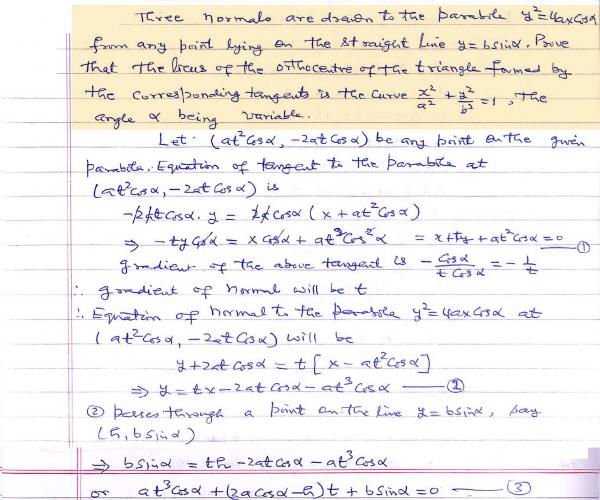 Three normals are drawn to the parabola y²=4ax cosα
from any point lying on the straight line y=b sinα. Prove
that the locus of the orthocentre of the triangle formed by
the corresponding tangents is the curve x²/a² + y²/b² = 1, the
angle α being variable.
Let (at²cosα, -2at cosα) be any point on the given
parabola. Equation of tangent to the parabola at
(at²cosα, -2at cosα) is
-2at cosα. y = 2a cosα (x + at²cosα)
⇒ -ty cosα = x cosα + at²cos²α = x+ty+at²cosα=0 ①
gradient of the above tangent is - cosα/(t cosα) = - 1/t
∴ gradient of normal will be t
∴ Equation of normal to the parabola y²=4ax cosα at
(at²cosα, -2at cosα) will be
y+2at cosα = t[x - at²cosα]
⇒ y = tx - 2at cosα - at³cosα — ②
② passes through a point on the line y=b sinα, say
(h, b sinα)
⇒ b sinα = th - 2at cosα - at³cosα
or at³cosα + (2a cosα - h)t + b sinα = 0 — ③